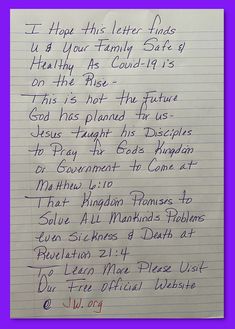 I Hope this letter finds
U & Your Family Safe &
Healthy As Covid-19 is
on the Rise-
This is not the future
God has planned for us-
Jesus taught his Disciples
to Pray for Gods Kingdom
or Government to Come at
Matthew 6:10
That Kingdom Promises to
Solve ALL Mankinds Problems
even Sickness & Death at
Revelation 21:4
To Learn More Please Visit
Our Free Official Website
@ JW.org